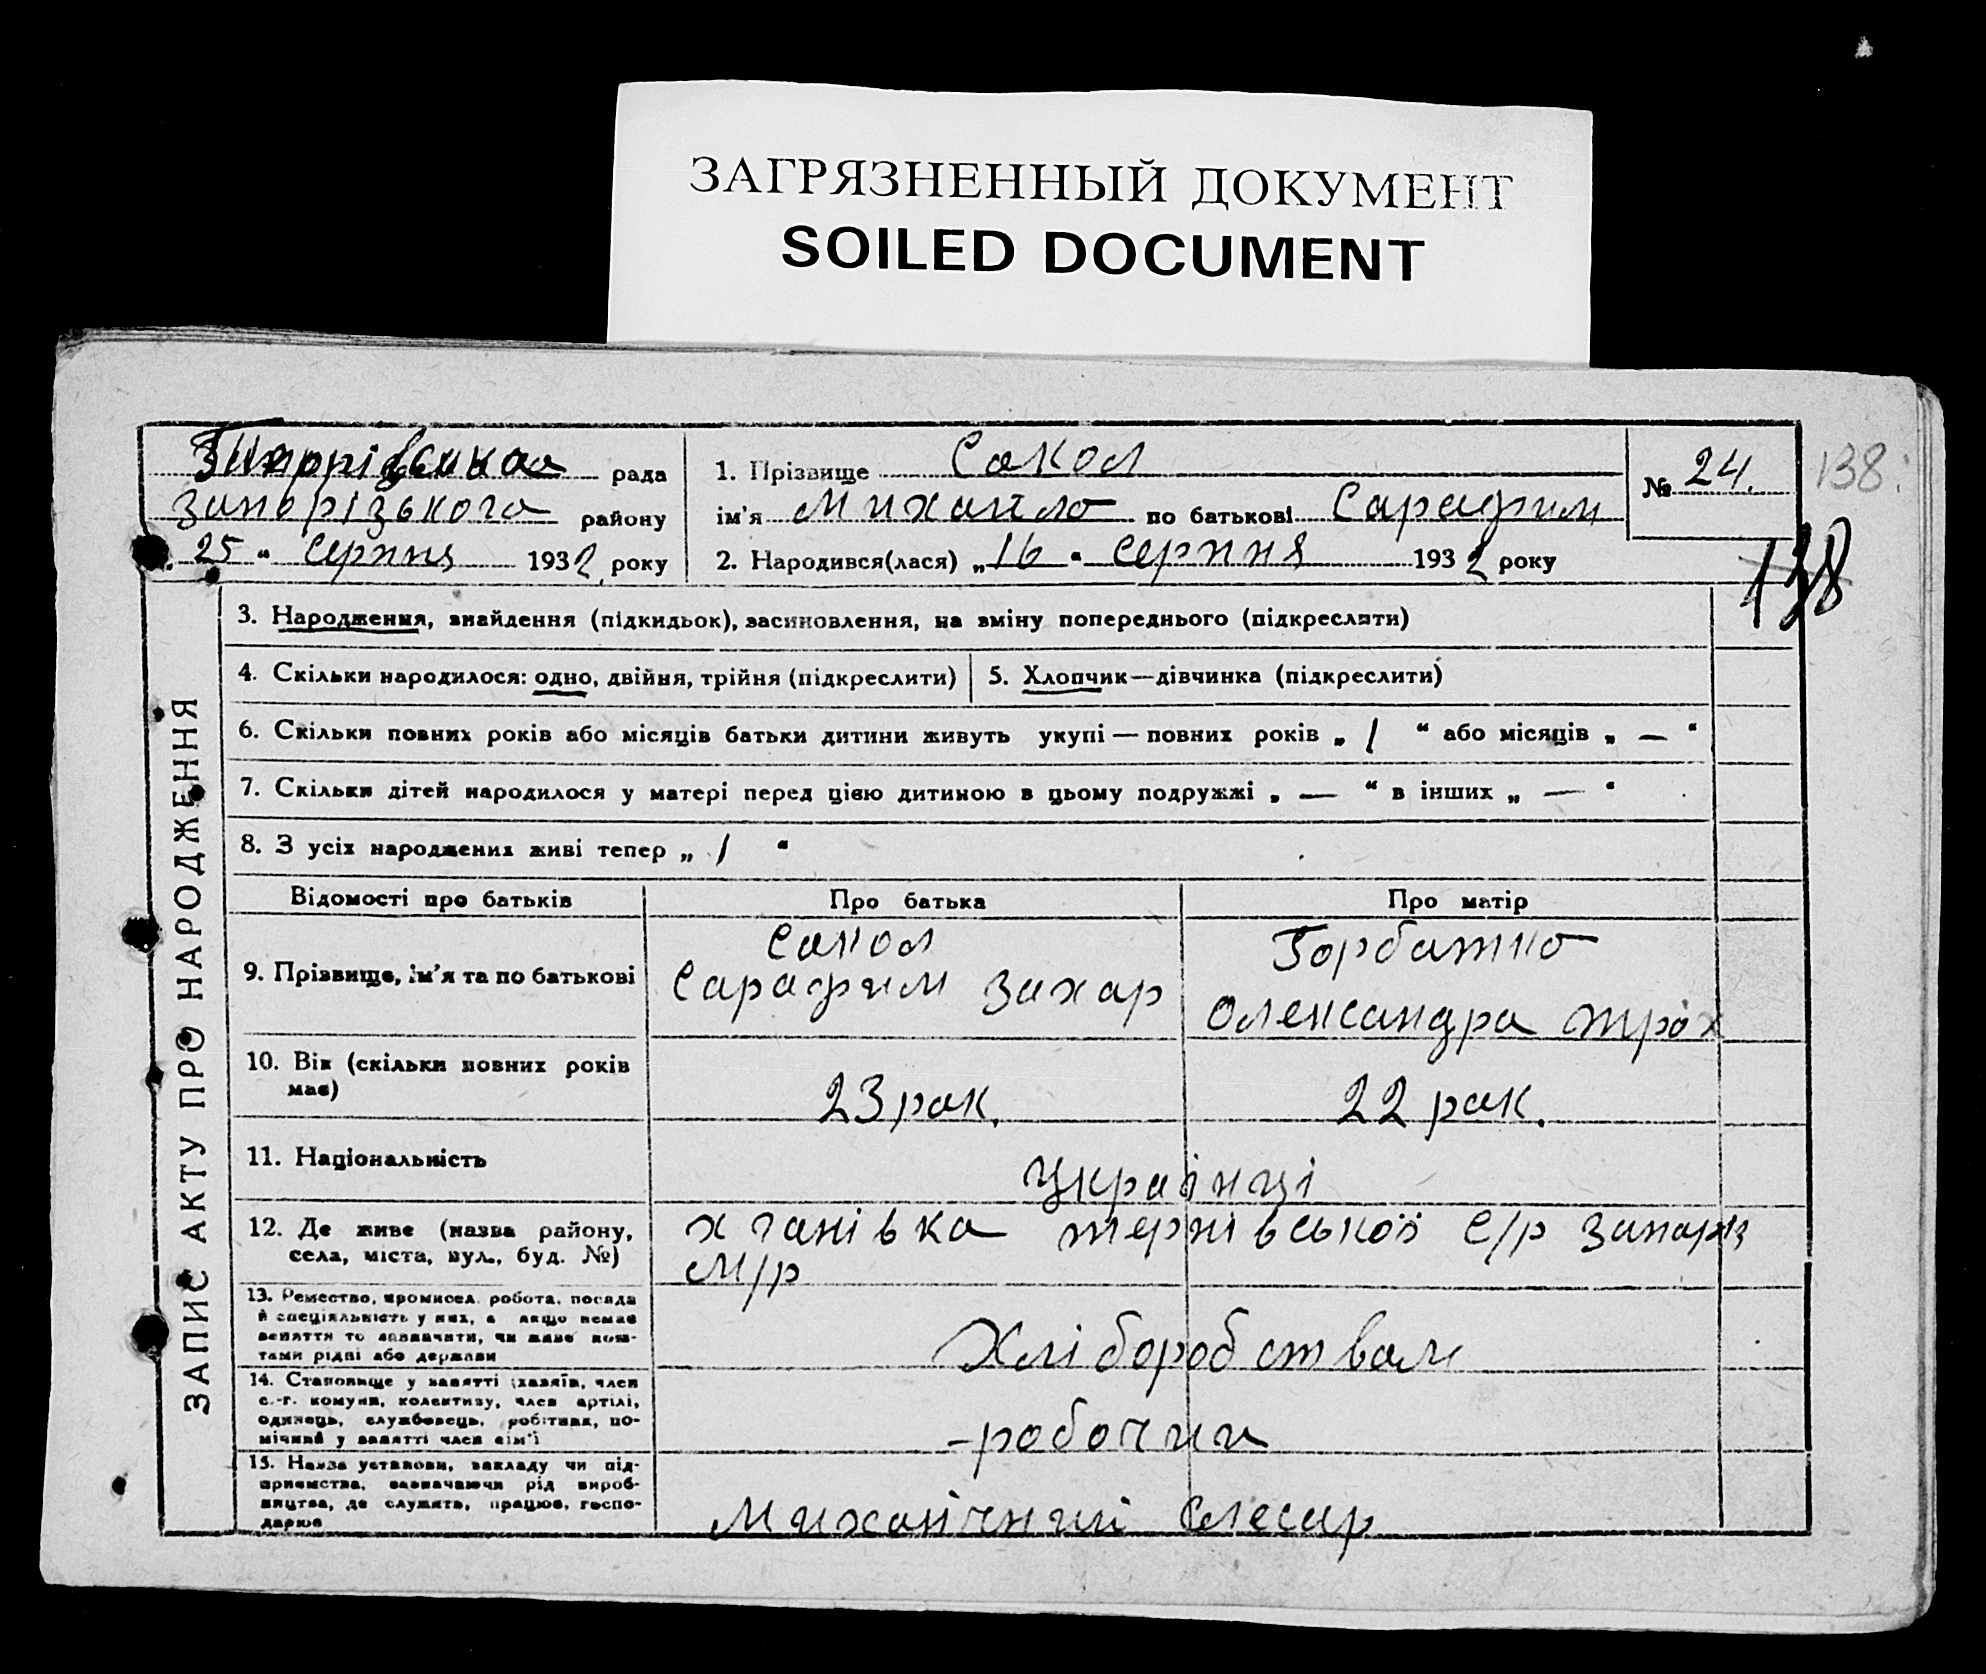 ЗАГРЯЗНЕННЫЙ ДОКУМЕНТ
SOILED DOCUMENT
рада
запорізького району
25 " серпня 1932 року
1. Прізвище Сокол
ім'я Михайло по батькові Сарафим
2. Народився(лася) „16 " серпня 1932 року
№ 24.
138
138
ЗАПИС АКТУ ПРО НАРОДЖЕННЯ
3. Народження, знайдення (підкидьок), засиновлення, на зміну попереднього (підкреслити)
4. Скільки народилося: одно, двійня, трійня (підкреслити)
5. Хлопчик—дівчинка (підкреслити)
6. Скільки повних років або місяців батьки дитини живуть укупі — повних років „ 1 " або місяців „ — "
7. Скільки дітей народилося у матері перед цією дитиною в цьому подружжі „ — " в інших „ — "
8. З усіх народжених живі тепер „ 1 "
Відомості про батьків
Про батька
Про матір
9. Прізвище, ім'я та по батькові
Сокол
Сарафим Захар
Горбатко
Олександра Трох
10. Вік (скільки повних років
має)
23 рок.
22 рок.
11. Національність
Українці
12. Де живе (назва району,
села, міста, вул., буд. №)
терпівської С/р Запоріз
М/р
13. Ремество, промисел. робота, посада
й спеціяльність у них, а якщо немає
заняття то зазначити, чи живе кош-
тами рідні або держави
Хліборобством
14. Становище у занятті (хазяїн, член
с.-г. комуни, колективу, член артілі,
одинець, службовець, робітник, по-
мічний у занятті член сім'ї
-робочии
15. Назва установи, закладу чи під-
приємства, зазначаючи рід вироб-
ництва, де служить, працює, госпо-
дарює
Миханічний Слесар